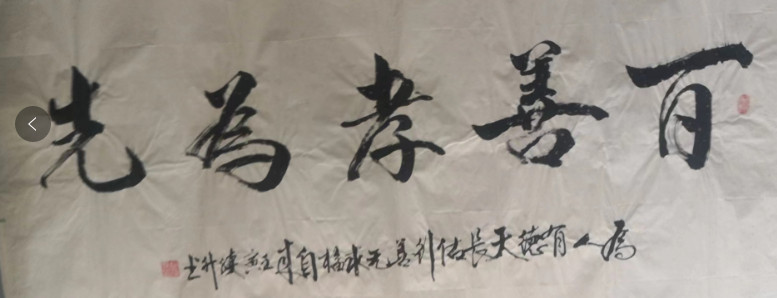 百善孝為先
為人有德天長佑行善無求福自來壬寅